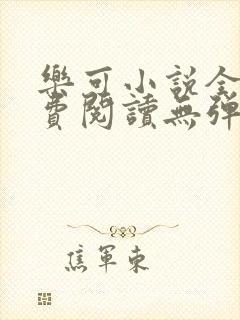 樂可小説全
費閱讀無彈
焦軍東